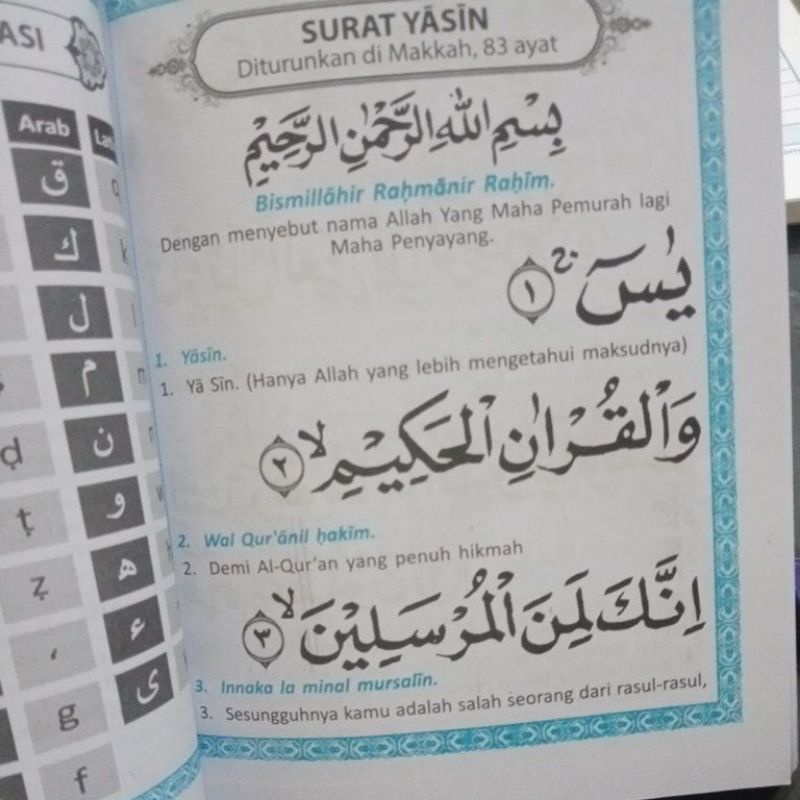 ASI
Arab
ق
q
ك
k
ل
l
م
m
ن
ḍ
و
ṭ
ه
ẓ
ء
ى
g
f
SURAT YĀSĪN
Diturunkan di Makkah, 83 ayat
بِسْمِ اللهِ الرَّحْمٰنِ الرَّحِيْمِ
Bismillāhir Raḥmānir Raḥīm.
Dengan menyebut nama Allah Yang Maha Pemurah lagi
Maha Penyayang.
يٰسۤ ۚ ١
1. Yāsīn.
1. Yā Sīn. (Hanya Allah yang lebih mengetahui maksudnya)
وَالْقُرْاٰنِ الْحَكِيْمِۙ ٢
2. Wal Qur'ānil ḥakīm.
2. Demi Al-Qur'an yang penuh hikmah
اِنَّكَ لَمِنَ الْمُرْسَلِيْنَۙ ٣
3. Innaka la minal mursalīn.
3. Sesungguhnya kamu adalah salah seorang dari rasul-rasul,